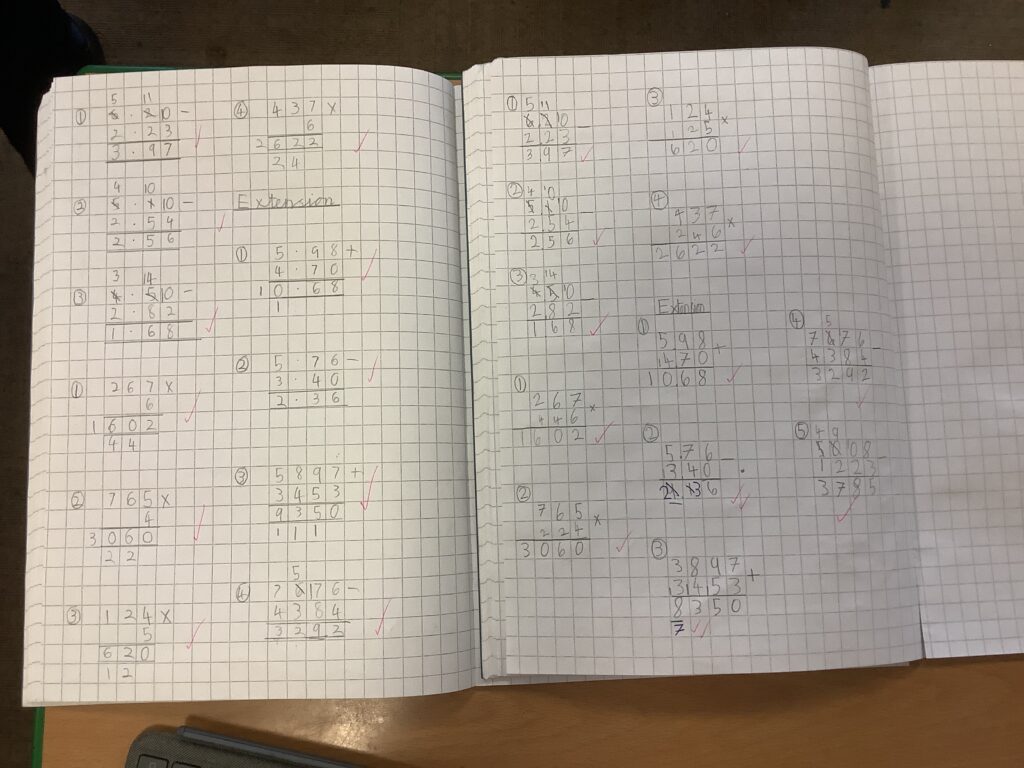 ① 5 11
6 . 2 10 -
2 . 2 3
3 . 9 7
② 4 10
5 . 1 10 -
2 . 5 4
2 . 5 6
③ 3 14
4 . 5 10 -
2 . 8 2
1 . 6 8
① 2 6 7 x
6
1 6 0 2
4 4
② 7 6 5 x
4
3 0 6 0
2 2
③ 1 2 4 x
5
6 2 0
1 2
④ 4 3 7 x
6
2 6 2 2
2 4
Extension
① 5 . 9 8 +
4 . 7 0
1 0 . 6 8
1
② 5 . 7 6 -
3 . 4 0
2 . 3 6
③ 5 8 9 7 +
3 4 5 3
9 3 5 0
1 1 1
④ 5
7 6 17 6 -
4 3 8 4
3 2 9 2
① 5 11
6 2 10
2 2 3 -
3 9 7
② 4 10
5 1 10
2 5 4 -
2 5 6
③ 3 14
4 5 10
2 8 2 -
1 6 8
① 2 6 7
4 4 6 x
1 6 0 2
② 7 6 5
2 2 4 x
3 0 6 0
③ 1 2 4
1 2 5 x
6 2 0
④ 4 3 7
2 4 6 x
2 6 2 2
Extension
① 5 9 8
14 7 0 +
1 0 6 8
② 5 7 6
3 4 0 -
3 6
③ 3 8 9 7
13 14 15 3 +
8 3 5 0
7
④ 5
7 6
4 3 8 4 -
3 2 9 2
⑤ 4 9
0 8
1 2 2 3 -
3 7 8 5